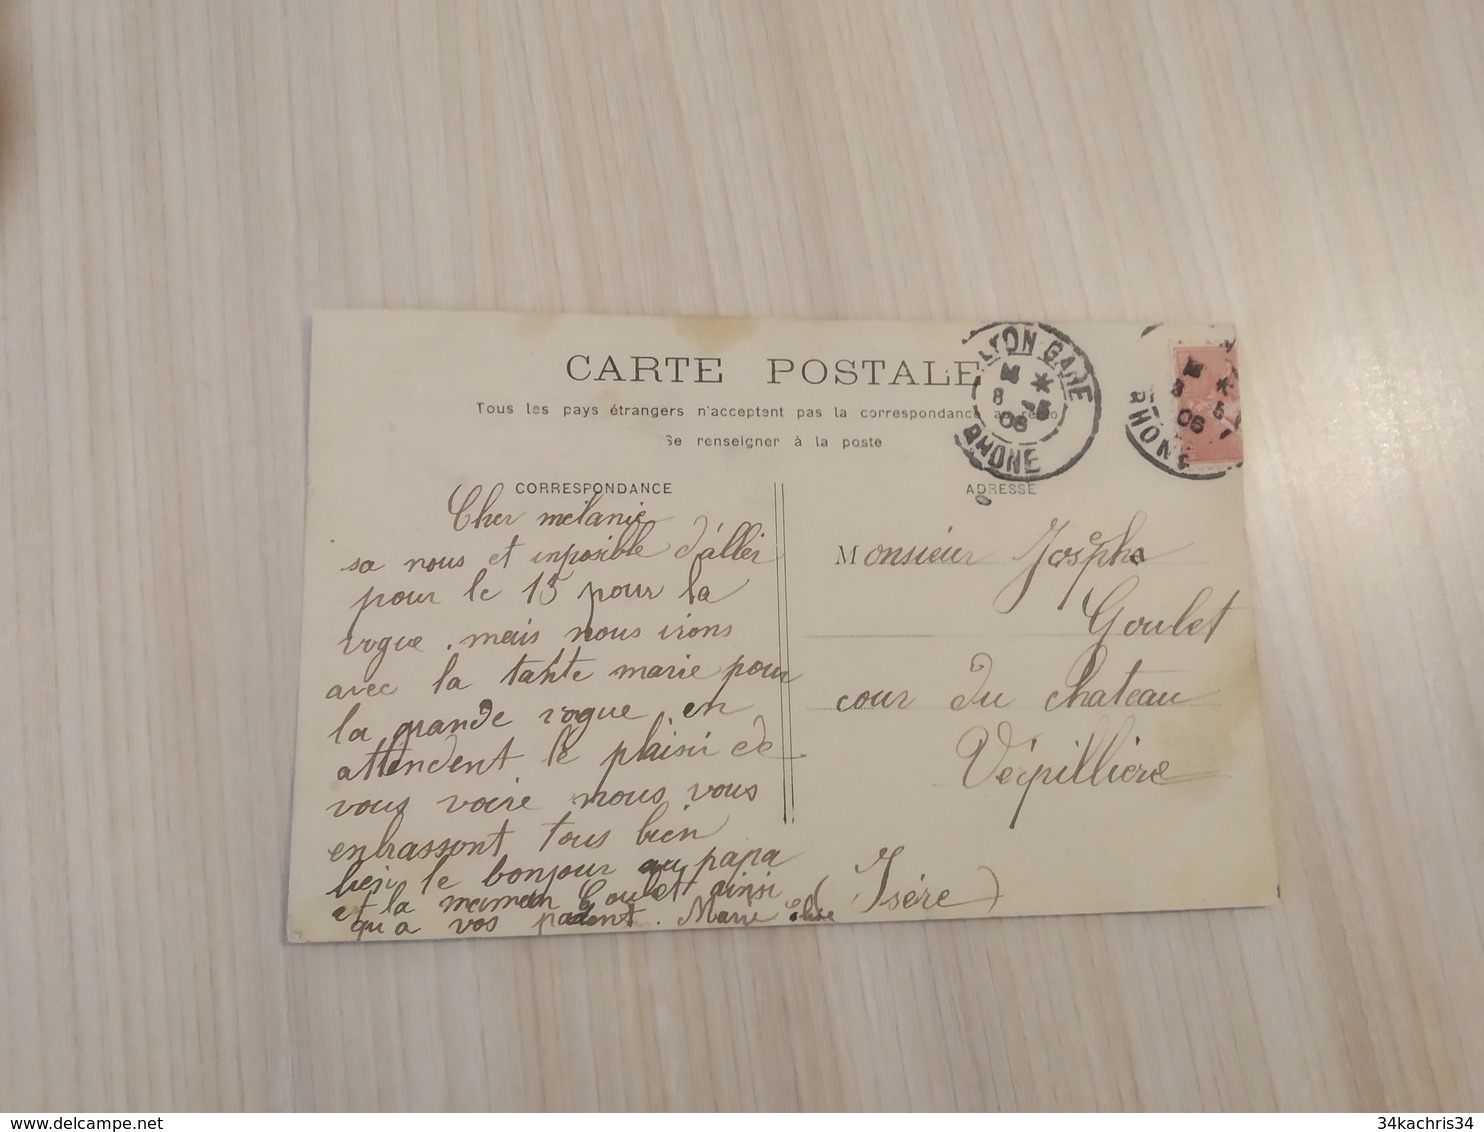 CARTE POSTALE
Tous les pays étrangers n'acceptent pas la correspondance au recto
Se renseigner à la poste
CORRESPONDANCE
ADRESSE
LYON-GARE
8 -5
06
RHONE
8 5
06
RHONE
Cher mélanie
sa nous et inposible d'aller
pour le 15 pour la
vogue. mais nous irons
avec la tante marie pour
la grande vogue en
attendent le plaisir de
vous voire nous vous
enbrassont tous bien
bien le bonjour au papa
et la meman Goulet ainsi
qu'a vos parent. Marie Elise
Monsieur Josephe
Goulet
cour du chateau
Vérpilliere
(Isére)
delcampe.net
34kachris34